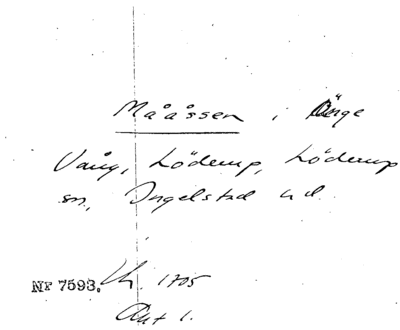 Mååssen i Ørge
Vång, Löderup, Löderup
sn, Ingelstad hd.
Nr 7593. Lh. 1705
Akt 1.